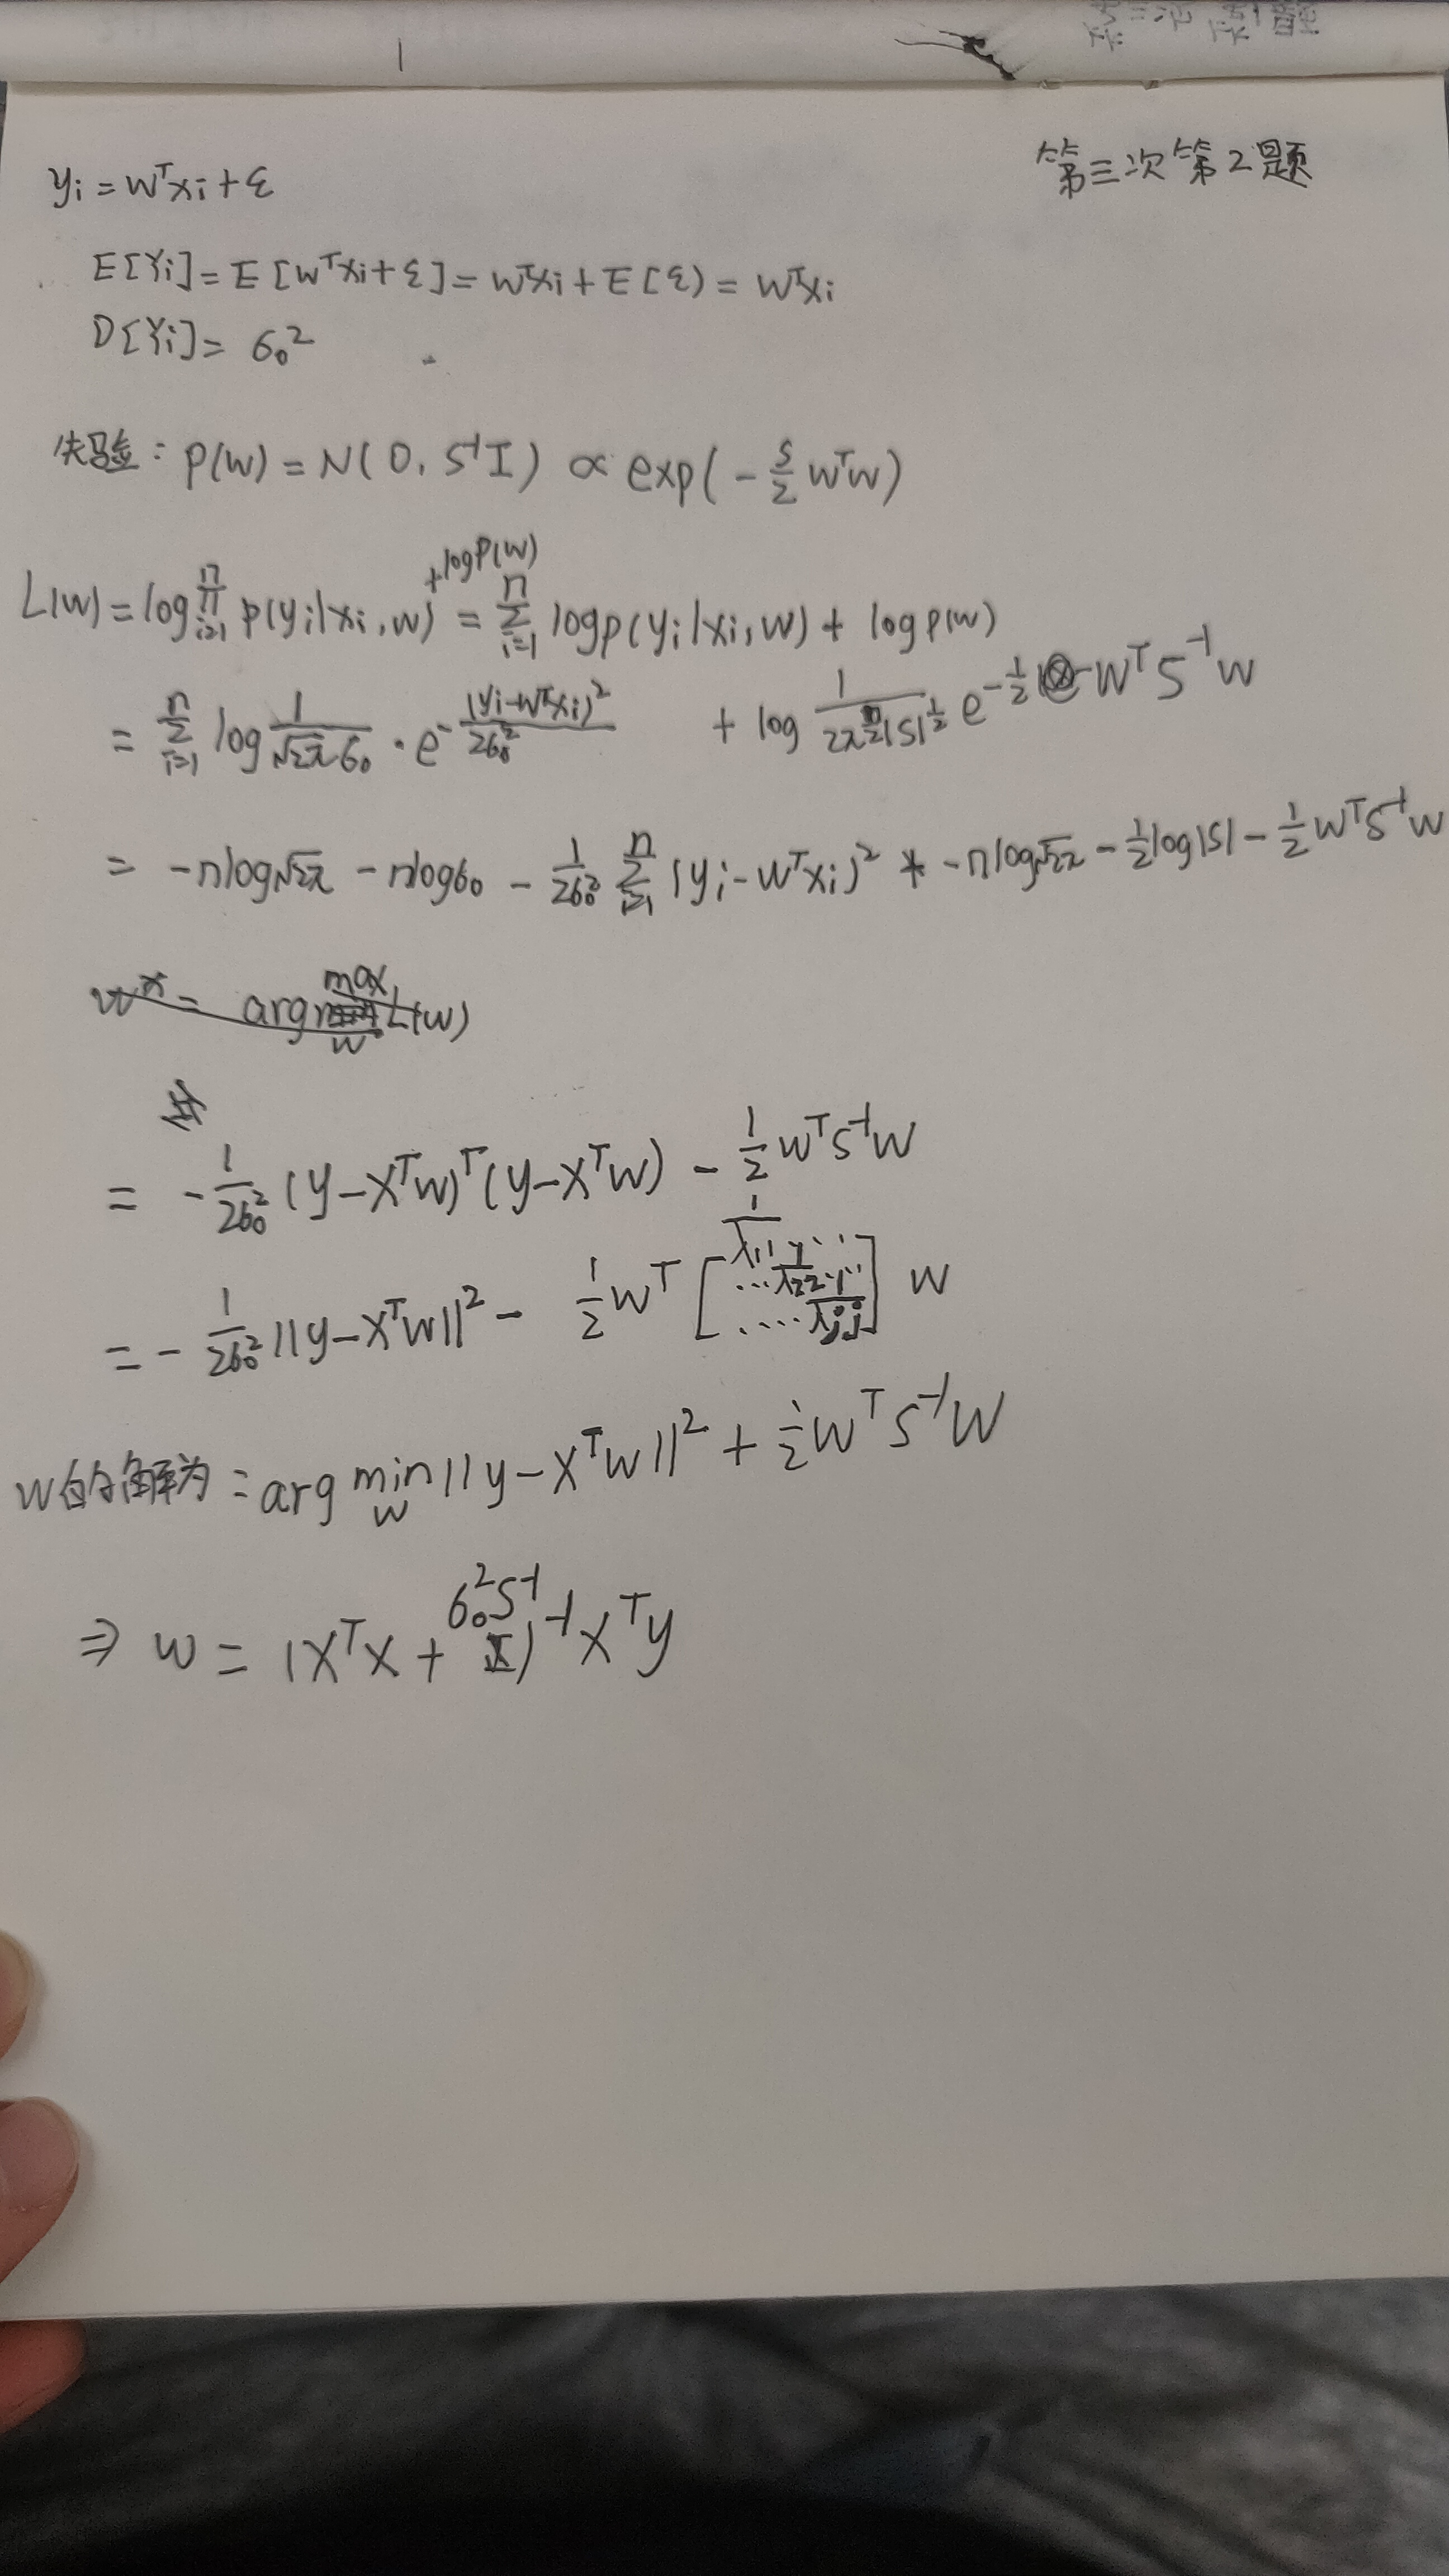 第三次第2题
yi = wᵀxi + ε
E[Yi] = E[wᵀxi + ε] = wᵀxi + E[ε) = wᵀxi
D[Yi] = σ₀²
先验: p(w) = N(0, S⁻¹I) ∝ exp(-S/2 wᵀw)
+logP(w)
L(w) = log ∏ᵢ₌₁ⁿ p(yi|xi, w) = Σᵢ₌₁ⁿ log p(yi|xi, w) + log p(w)
= Σᵢ₌₁ⁿ log 1/(√2π σ₀) · e^-(yi-wᵀxi)²/2σ₀² + log 1/(2π^(n/2)|S|^½) e^-½ wᵀS⁻¹w
= -nlog√2π - nlogσ₀ - 1/2σ₀² Σᵢ₌₁ⁿ (yi - wᵀxi)² + -nlog√2π - ½log|S| - ½wᵀS⁻¹w
w* = arg max_w L(w)
= -1/2σ₀² (y - Xᵀw)ᵀ(y - Xᵀw) - ½wᵀS⁻¹w
= -1/2σ₀² ||y - Xᵀw||² - ½wᵀ [1/λ11 ... 1/λ22 ... 1/λjj] w
w的解为: arg min_w ||y - Xᵀw||² + ½wᵀS⁻¹w
⇒ w = (XᵀX + σ₀²S⁻¹)⁻¹Xᵀy